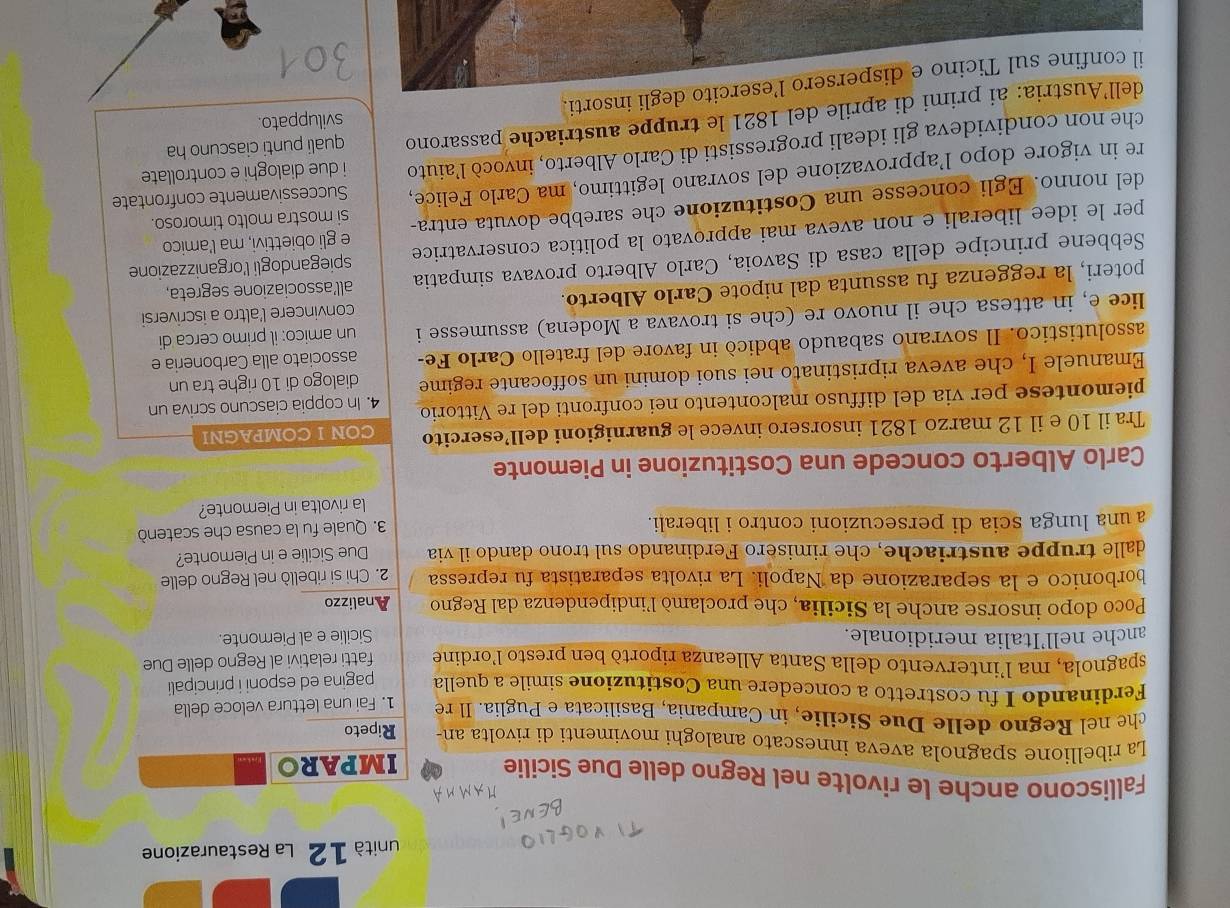 unità 12 La Restaurazione
TI VOGLIO
BENE!
MAMMA
Falliscono anche le rivolte nel Regno delle Due Sicilie
La ribellione spagnola aveva innescato analoghi movimenti di rivolta an-
che nel Regno delle Due Sicilie, in Campania, Basilicata e Puglia. Il re
Ferdinando I fu costretto a concedere una Costituzione simile a quella
spagnola, ma l'intervento della Santa Alleanza riportò ben presto l'ordine
anche nell'Italia meridionale.
Poco dopo insorse anche la Sicilia, che proclamò l'indipendenza dal Regno
borbonico e la separazione da Napoli. La rivolta separatista fu repressa
dalle truppe austriache, che rimisero Ferdinando sul trono dando il via
a una lunga scia di persecuzioni contro i liberali.
Carlo Alberto concede una Costituzione in Piemonte
Tra il 10 e il 12 marzo 1821 insorsero invece le guarnigioni dell'esercito
piemontese per via del diffuso malcontento nei confronti del re Vittorio
Emanuele I, che aveva ripristinato nei suoi domini un soffocante regime
assolutistico. Il sovrano sabaudo abdicò in favore del fratello Carlo Fe-
lice e, in attesa che il nuovo re (che si trovava a Modena) assumesse i
poteri, la reggenza fu assunta dal nipote Carlo Alberto.
Sebbene principe della casa di Savoia, Carlo Alberto provava simpatia
per le idee liberali e non aveva mai approvato la politica conservatrice
del nonno. Egli concesse una Costituzione che sarebbe dovuta entra-
re in vigore dopo l'approvazione del sovrano legittimo, ma Carlo Felice,
che non condivideva gli ideali progressisti di Carlo Alberto, invocò l'aiuto
dell'Austria: ai primi di aprile del 1821 le truppe austriache passarono
il confine sul Ticino e dispersero l'esercito degli insorti.
IMPARO
Ripeto
1. Fai una lettura veloce della
pagina ed esponi i principali
fatti relativi al Regno delle Due
Sicilie e al Piemonte.
Analizzo
2. Chi si ribellò nel Regno delle
Due Sicilie e in Piemonte?
3. Quale fu la causa che scatenò
la rivolta in Piemonte?
CON I COMPAGNI
4. In coppia ciascuno scriva un
dialogo di 10 righe tra un
associato alla Carboneria e
un amico: il primo cerca di
convincere l'altro a iscriversi
all'associazione segreta,
spiegandogli l'organizzazione
e gli obiettivi, ma l'amico
si mostra molto timoroso.
Successivamente confrontate
i due dialoghi e controllate
quali punti ciascuno ha
sviluppato.
301